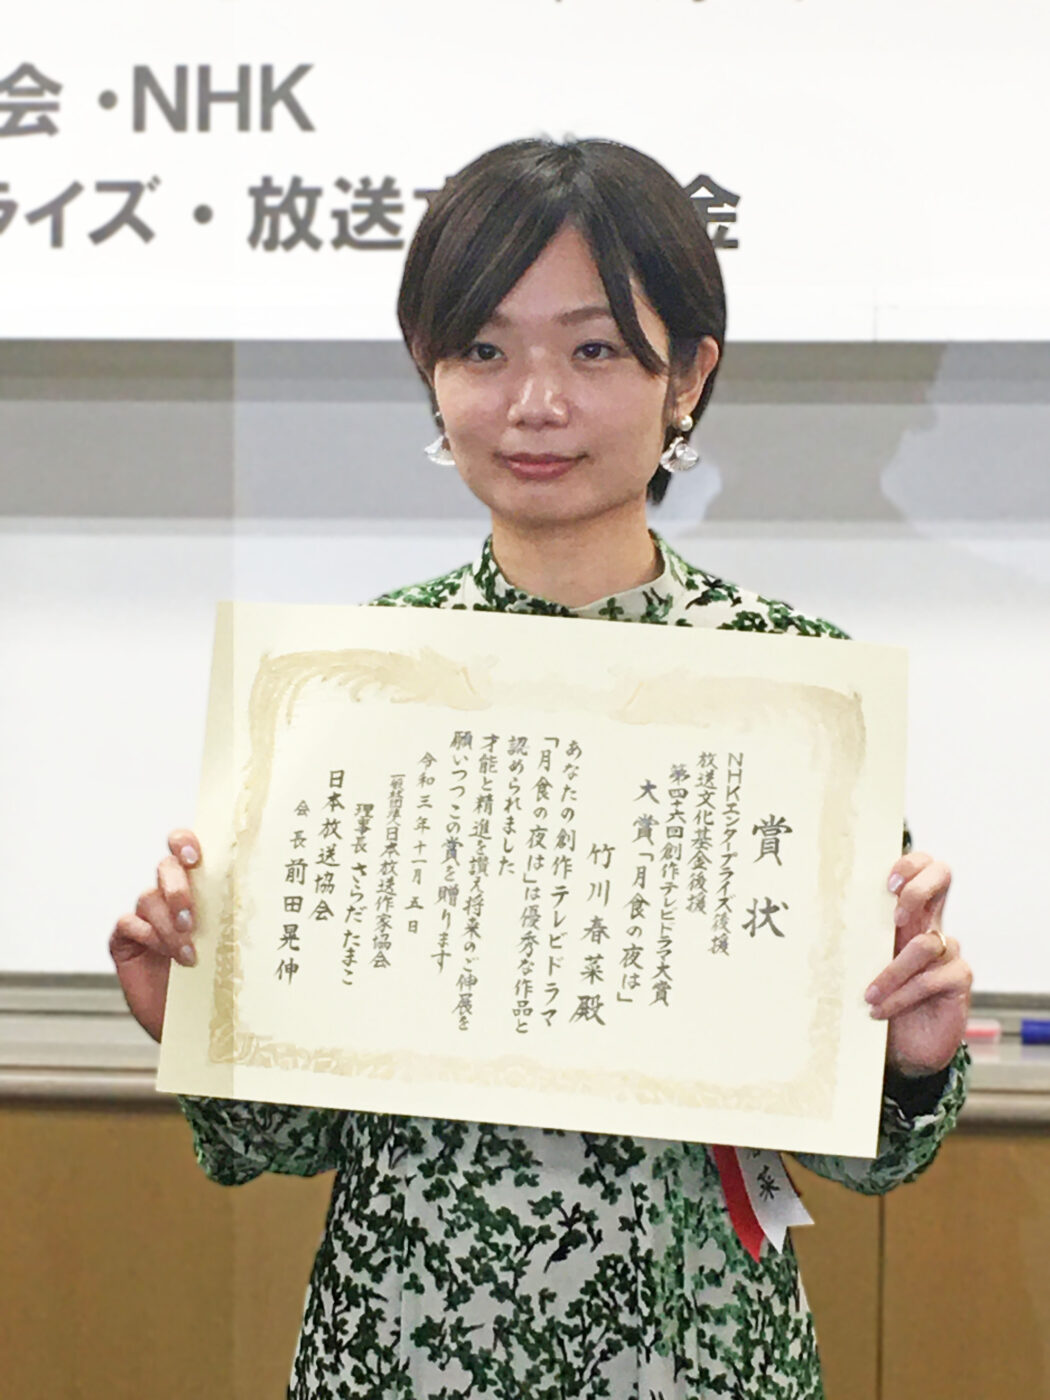 会・NHK
ライズ・放送
金
賞状
NHKエンタープライズ後援
放送文化基金後援
第四十六回創作テレビドラマ大賞
大賞「月食の夜は」
竹川春菜殿
あなたの創作テレビドラマ
「月食の夜は」は優秀な作品と
認められました
才能と精進を讃え将来のご伸展を
願いつつこの賞を贈ります
令和三年十一月五日
一般社団法人日本放送作家協会
理事長さらだたまこ
日本放送協会
会長前田晃伸
菜